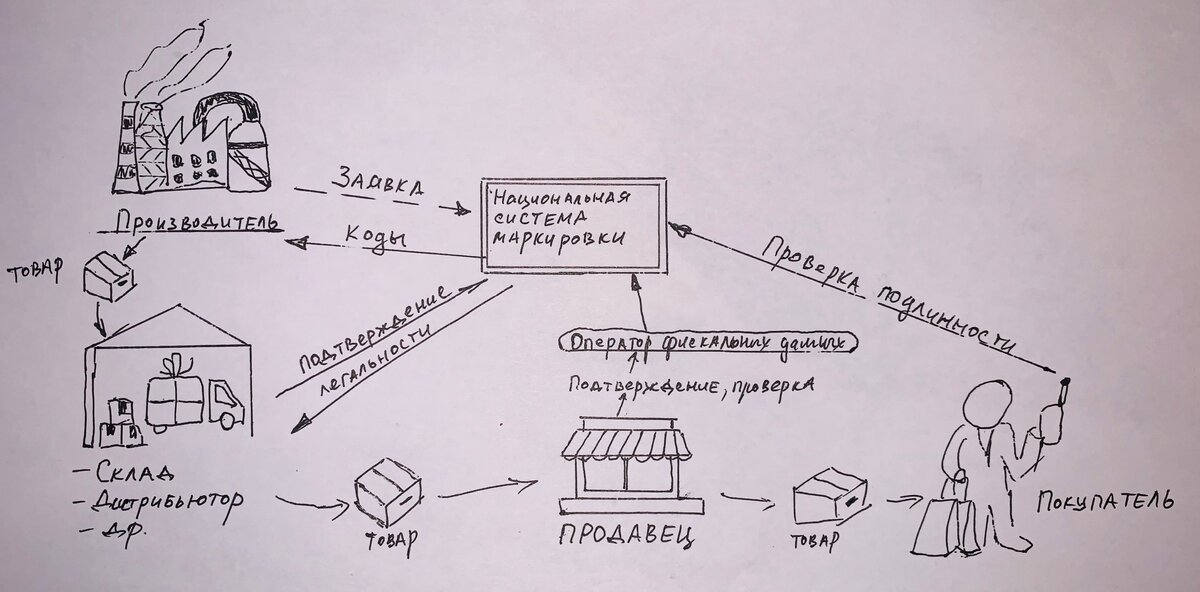 Заявка
Национальная
система
маркировки
Производитель
Коды
Проверка подлинности
товар
подтверждение
легальности
Оператор фискальных данных
Подтверждение, проверка
- Склад
- Дистрибьютор
- др.
товар
ПРОДАВЕЦ
товар
Покупатель